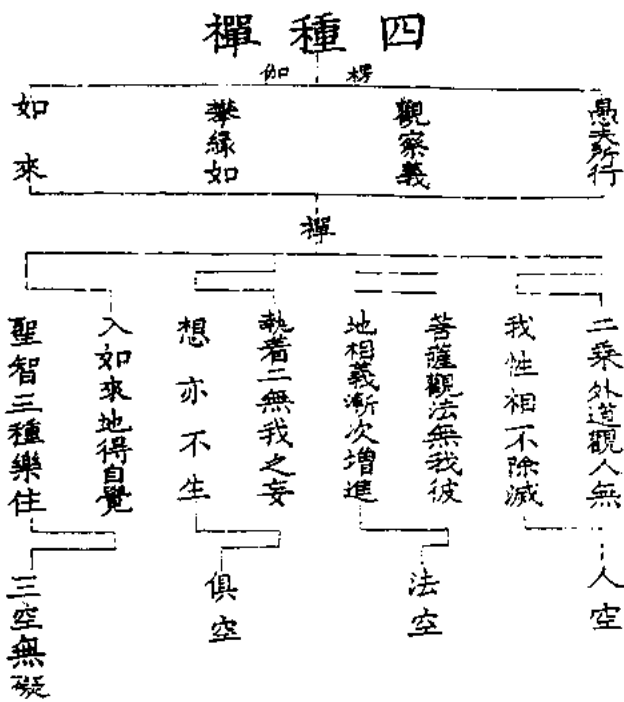 四種禪
楞伽
愚夫所行
觀察義
攀緣如
如來
禪
二乘外道觀人無
我性相不除滅
菩薩觀法無我彼
地相義漸次增進
執著二無我之妄
想亦不生
入如來地得自覺
聖智三種樂住
人空
法空
俱空
三空無礙